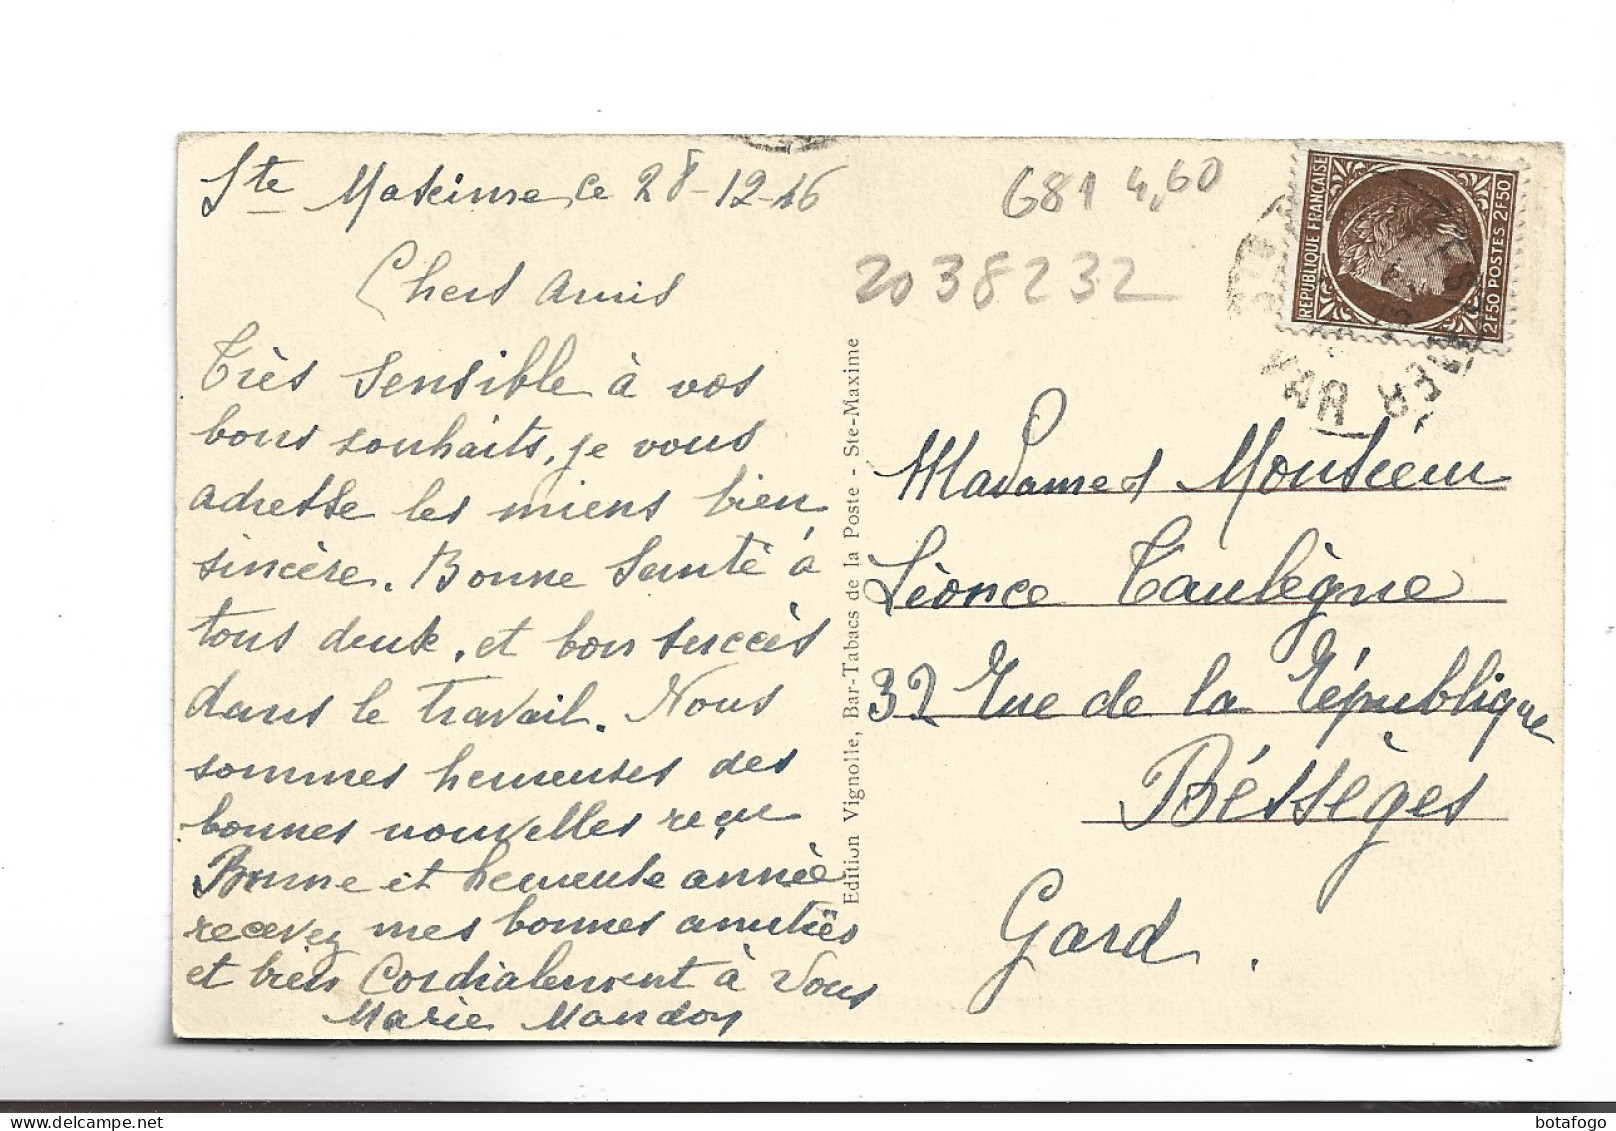 Ste Maxime, ce 28-12-46
Chers Amis
Très sensible à vos
bons souhaits, je vous
adresse les miens bien
sincère. Bonne Santé à
tous deux, et bon succès
dans le travail. Nous
sommes heureuses des
bonnes nouvelles reçue
Bonne et heureuse année
recevez mes bonnes amitiés
et bien Cordialement à Vous
Marie
Edition Vignolle, Bar-Tabacs de la Poste - Ste-Maxime
681 4,60
2038232
REPUBLIQUE FRANÇAISE
2F50 POSTES 2F50
VAR
Madame et Monsieur
Léonce Taulègne
32 Rue de la République
Bességes
Gard.
botafogo